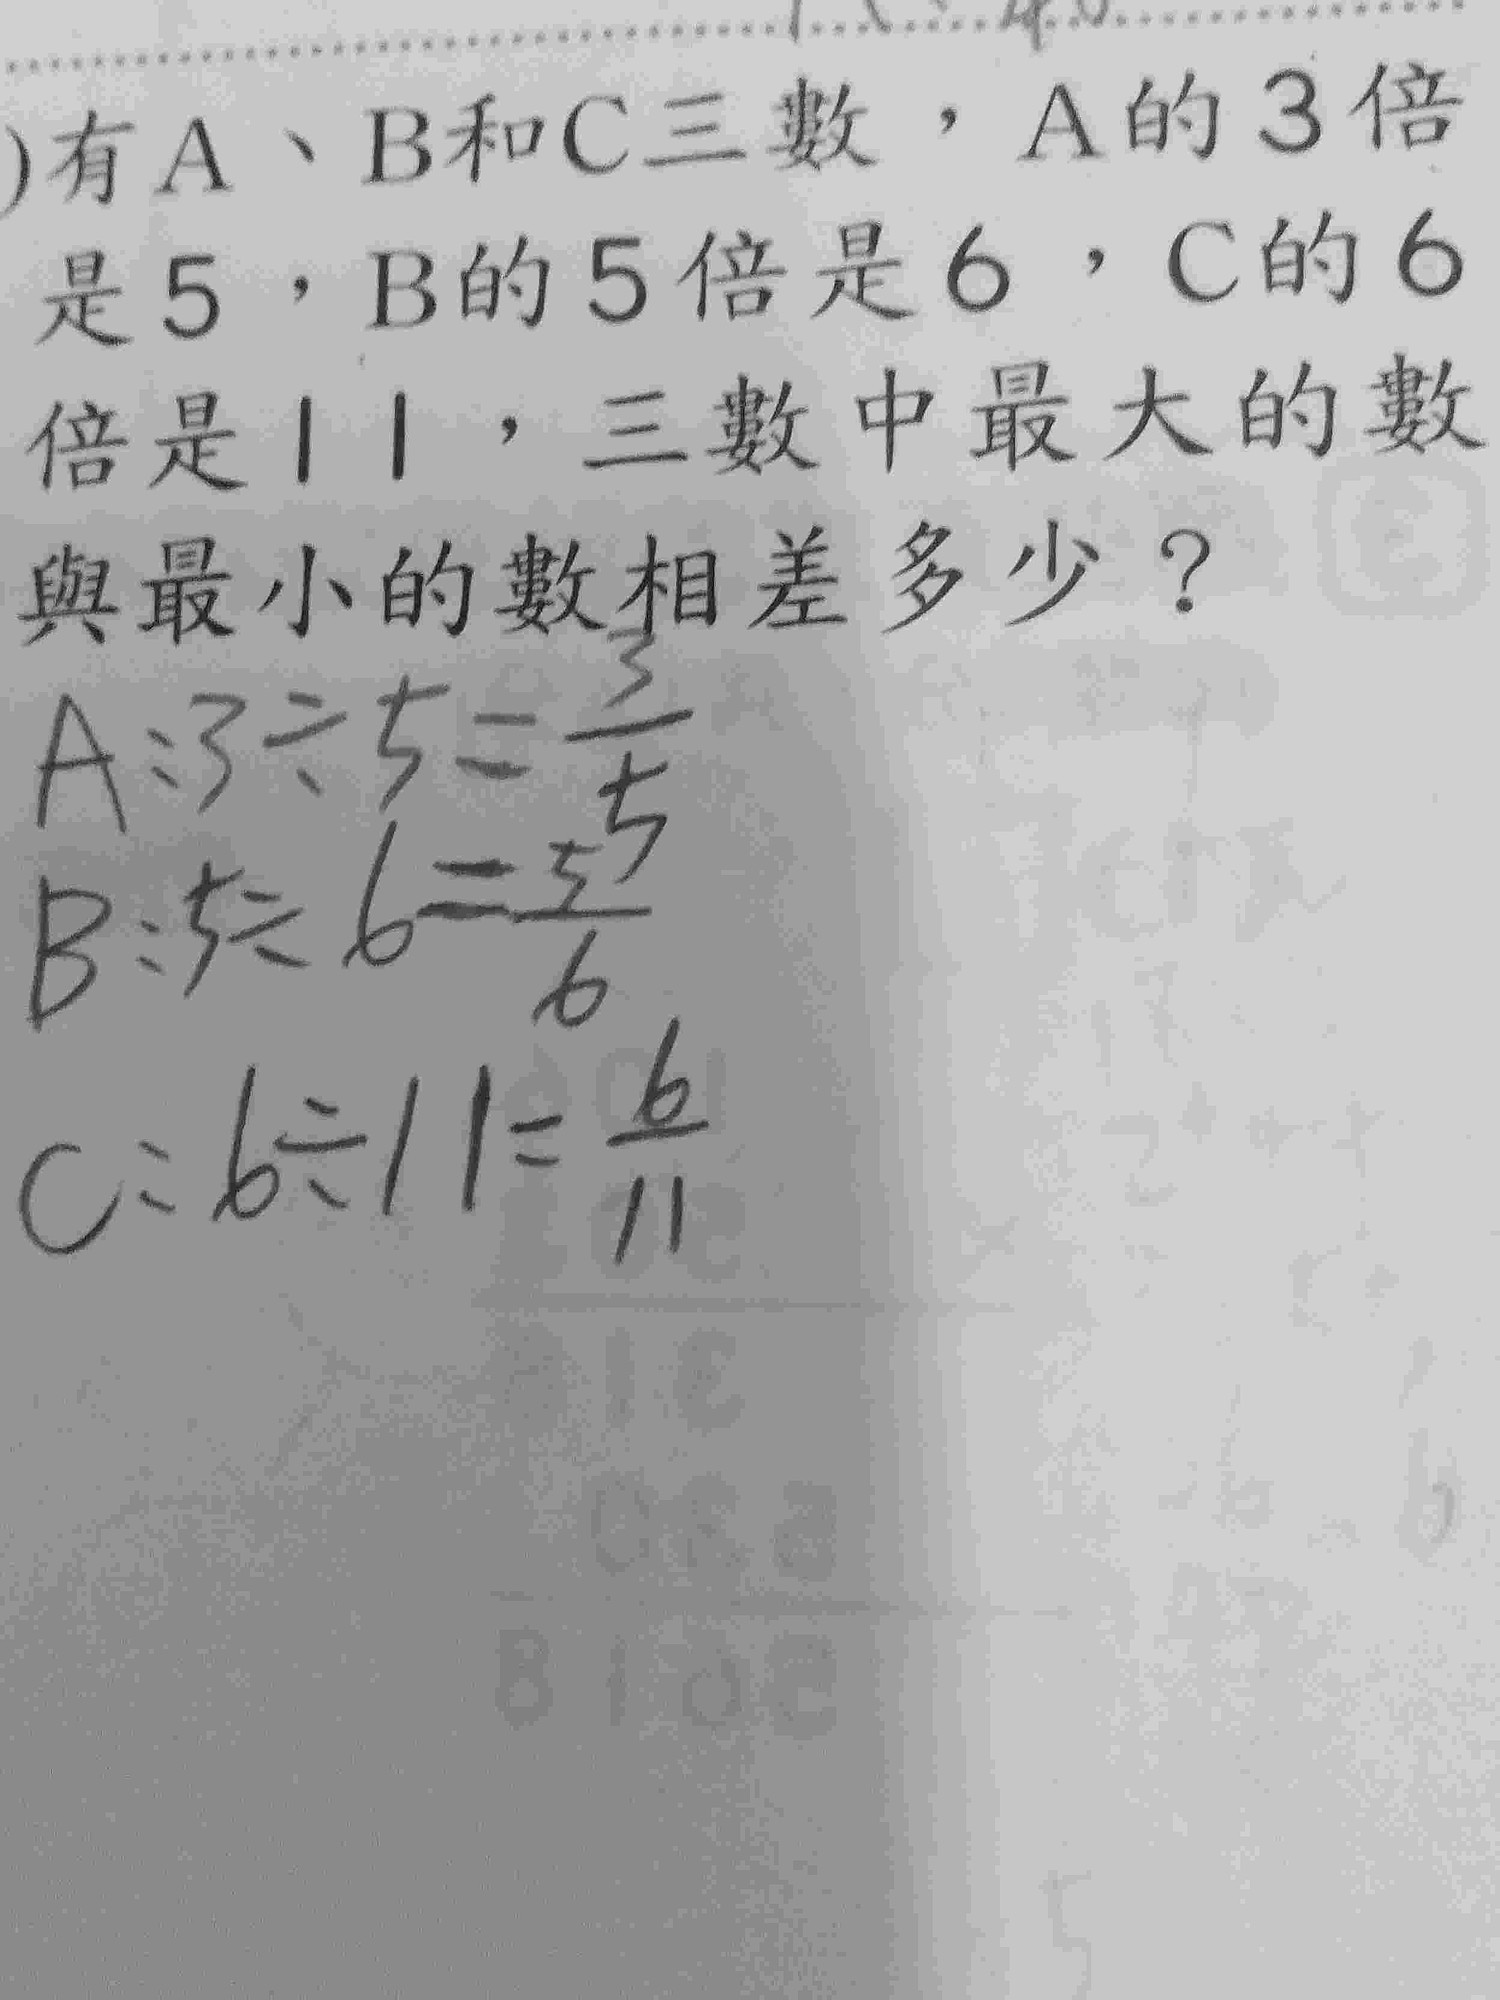 )有A、B和C三數，A的3倍
是5，B的5倍是6，C的6
倍是11，三數中最大的數
與最小的數相差多少？
A:3÷5=3/5
B:5÷6=5/6
C:6÷11=6/11